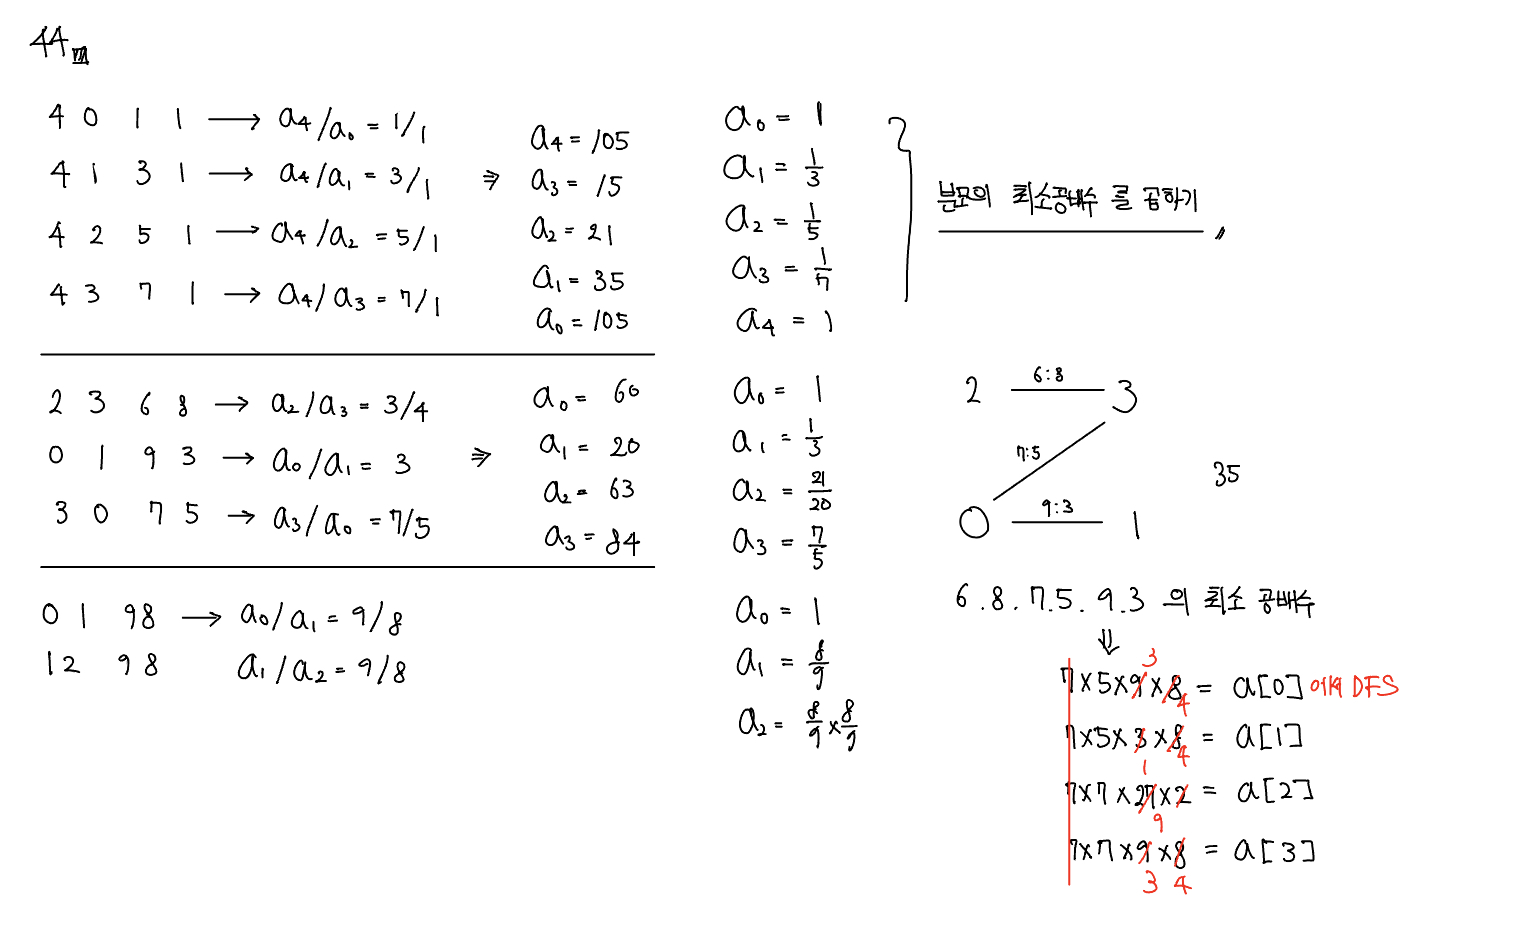 44m
4 0 1 1 → a4/a0 = 1/1
4 1 3 1 → a4/a1 = 3/1 ⇒
4 2 5 1 → a4/a2 = 5/1
4 3 7 1 → a4/a3 = 7/1
a4 = 105
a3 = 15
a2 = 21
a1 = 35
a0 = 105
a0 = 1
a1 = 1/3
a2 = 1/5
a3 = 1/7
a4 = 1
분모의 최소공배수를 곱하기
2 3 6 8 → a2/a3 = 3/4
0 1 9 3 → a0/a1 = 3 ⇒
3 0 7 5 → a3/a0 = 7/5
a0 = 60
a1 = 20
a2 = 63
a3 = 84
a0 = 1
a1 = 1/3
a2 = 21/20
a3 = 7/5
2 6:8 3
7:5
0 9:3 1
35
0 1 98 → a0/a1 = 9/8
12 98 a1/a2 = 9/8
a0 = 1
a1 = 8/9
a2 = 8/9 × 8/9
6.8.7.5.9.3 의 최소 공배수
⇓
3
7×5×9×8 = a[0] 에서 DFS
4
7×5×3×8 = a[1]
1 4
7×7×27×2 = a[2]
9
7×7×9×8 = a[3]
3 4